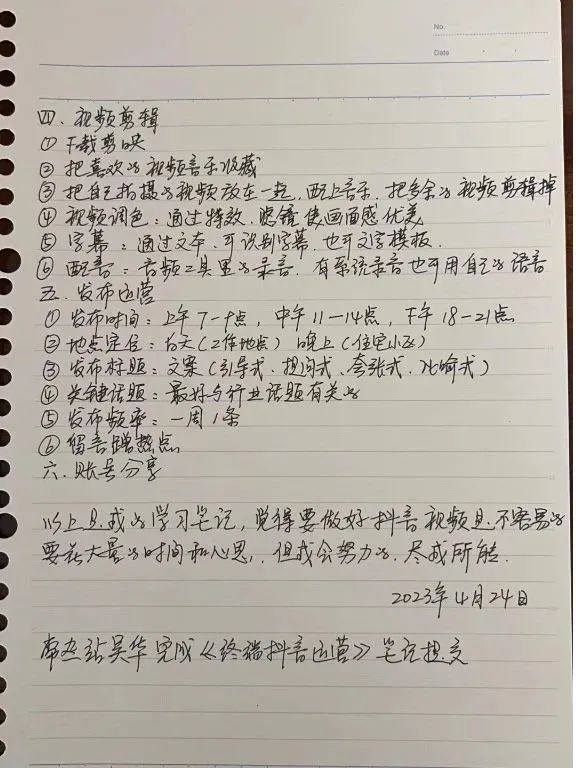 No.
Date
四. 视频剪辑
① 下载剪映
② 把喜欢的视频音乐收藏
③ 把自己拍摄的视频放在一起, 配上音乐, 把多余的视频剪辑掉
④ 视频调色：通过特效、滤镜使画面感优美
⑤ 字幕：通过文本, 可识别字幕, 也可文字模板.
⑥ 配音：音频工具里的录音, 有系统录音也可用自己的语音
五. 发布运营
① 发布时间：上午7-9点, 中午11-14点, 下午18-21点
② 地点定位：白天(工作地点) 晚上(住宅小区)
③ 发布标题：文案(引导式、提问式、夸张式、比喻式)
④ 关键话题：最好与行业话题有关的
⑤ 发布频率：一周1条
⑥ 留言蹭热点
六. 账号分享
以上是我的学习笔记, 觉得要做好抖音视频是不容易的
要花大量的时间和心思, 但我会努力的, 尽我所能.
2023年4月24日
常熟站吴华完成《终端抖音运营》笔记提交